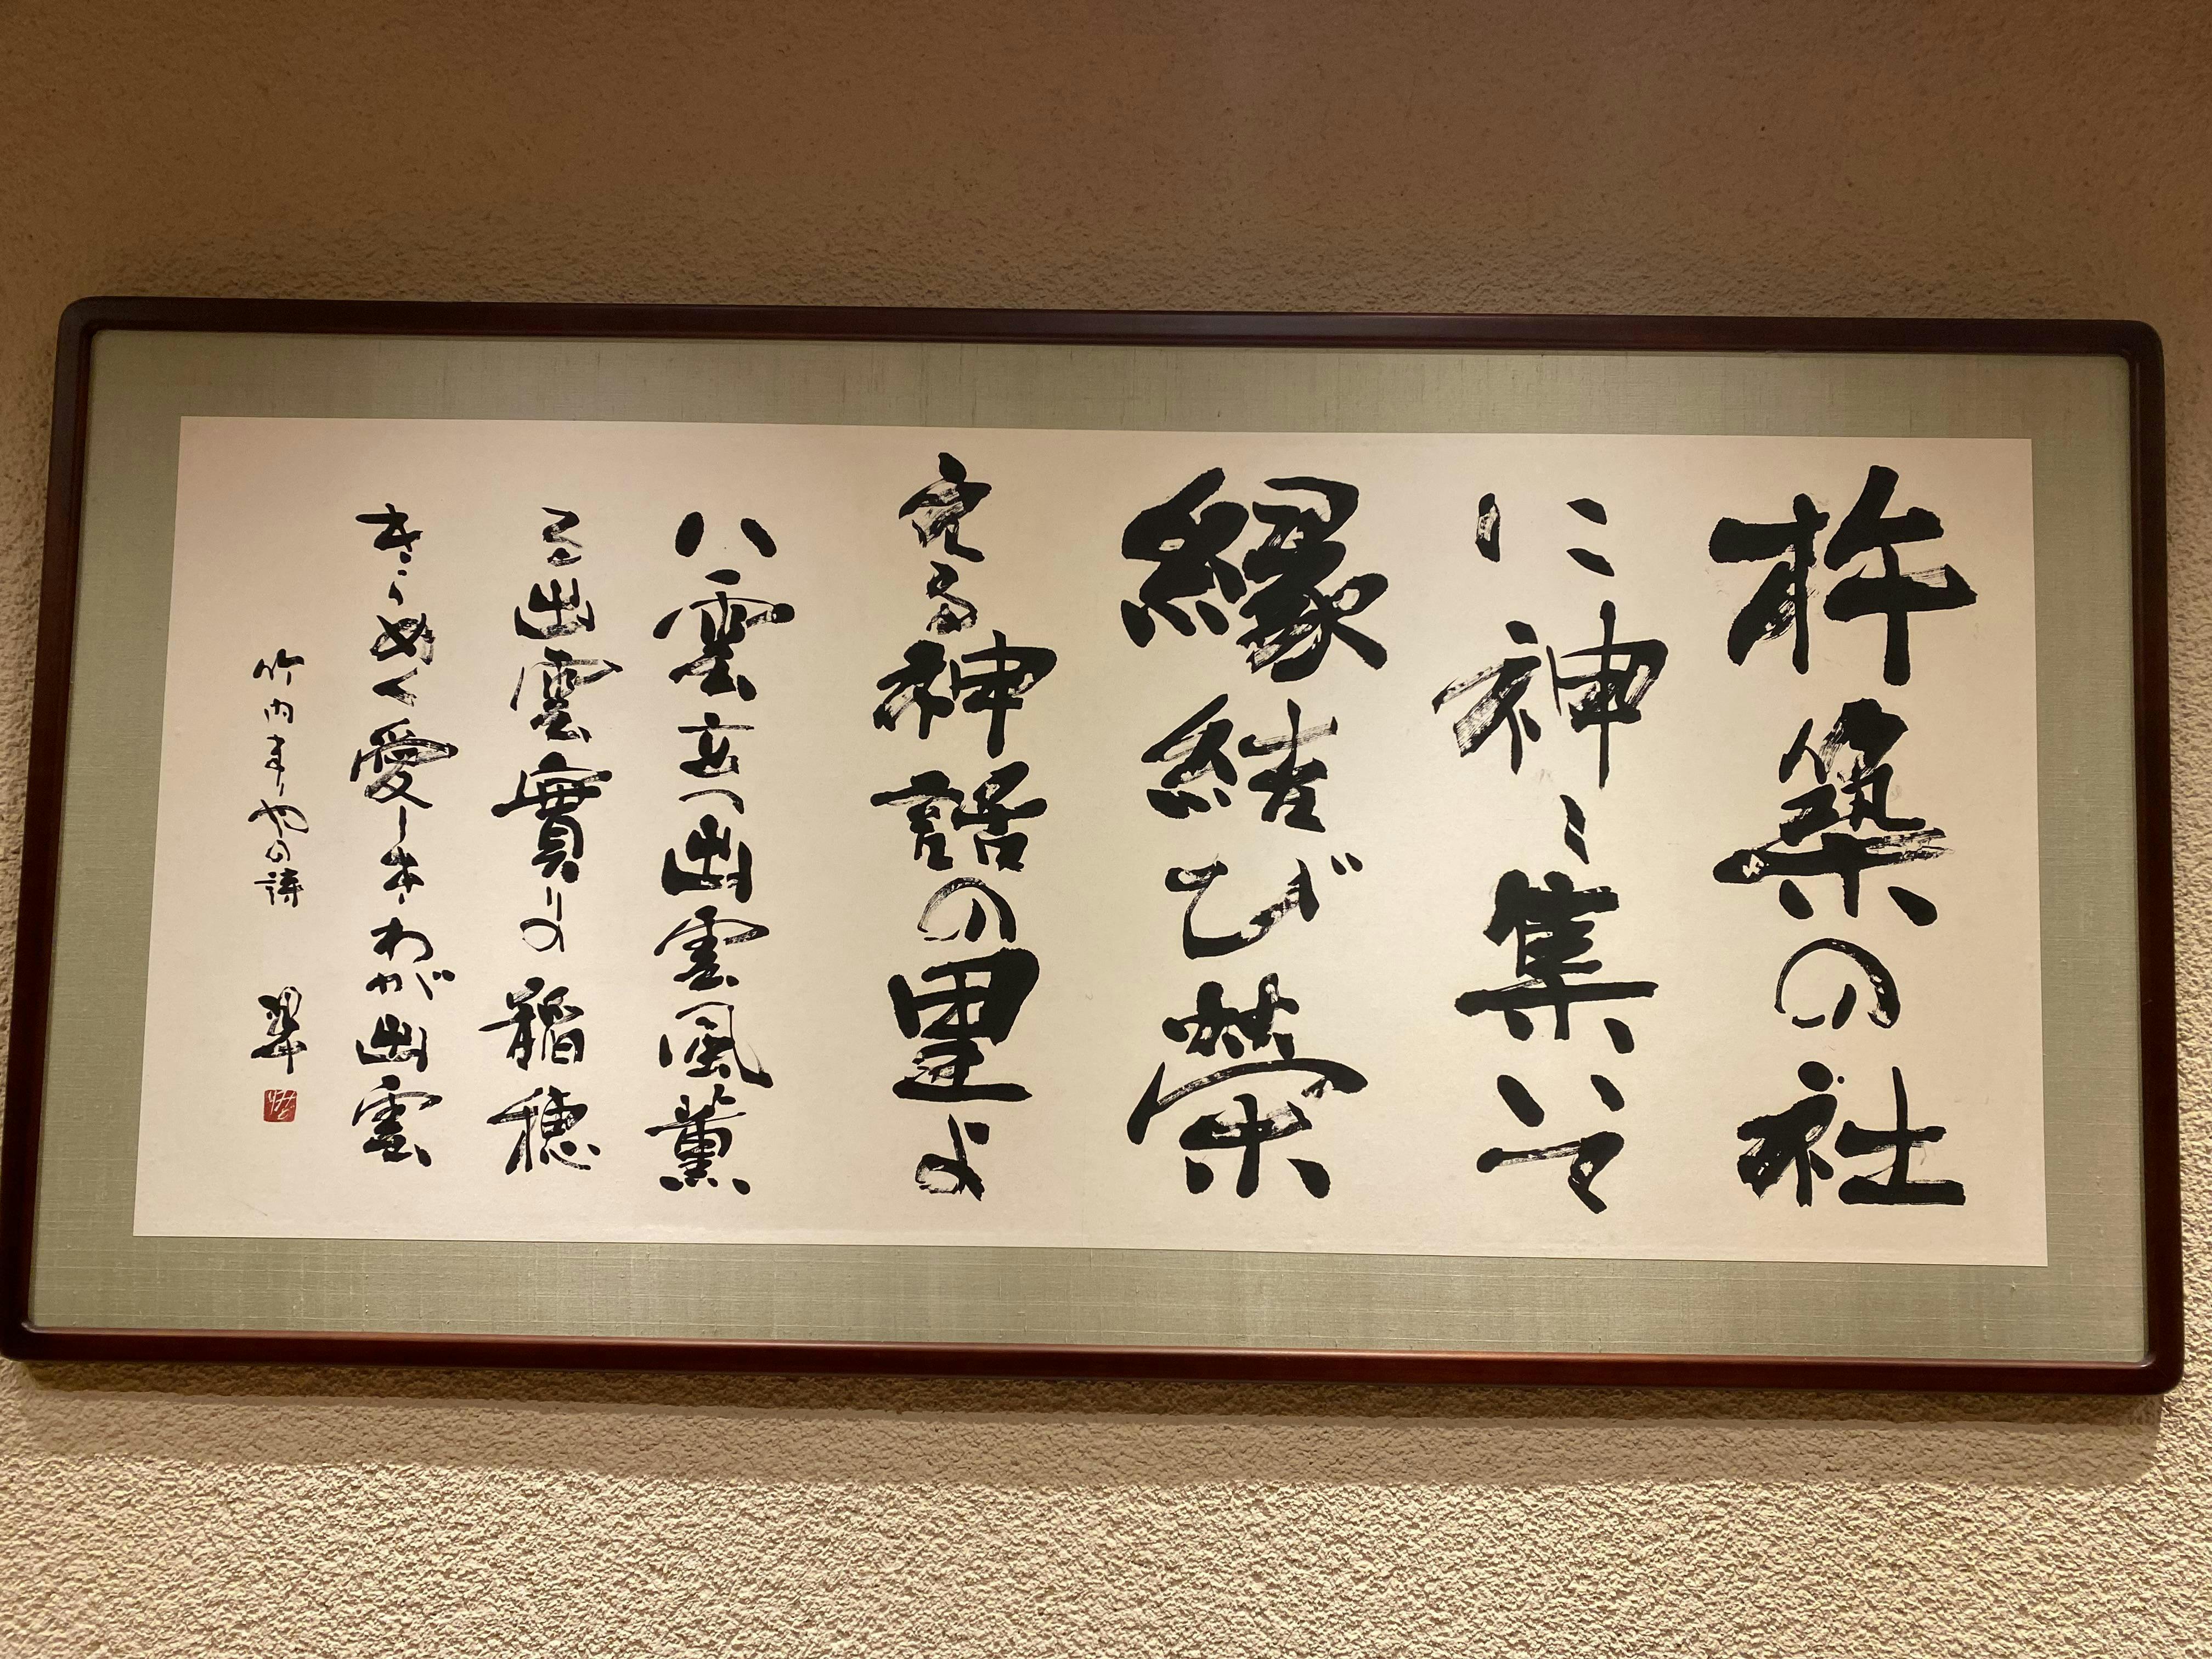 杵築の社
に神々集いて
縁結び栄
える神話の里よ
八雲立つ出雲風薫
る出雲實りの稲穂
きらめく愛しきわが出雲
竹内まりやの詩 翠